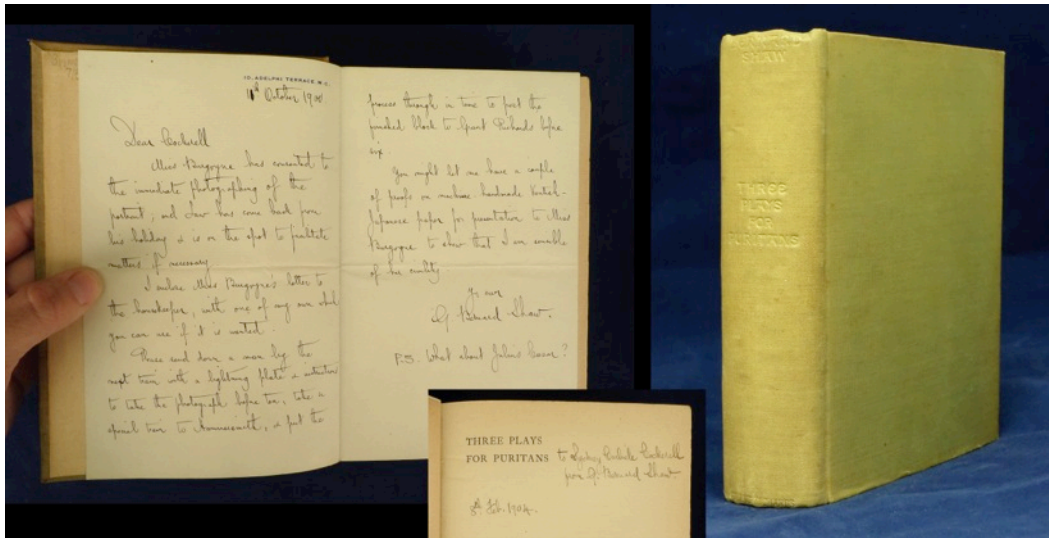 10, ADELPHI TERRACE, W.C.
11th October 1900
Dear Cockerell
Miss Burgoyne has consented to
the immediate photographing of the
portrait, and Law has come back from
his holiday & is on the spot to facilitate
matters if necessary
I enclose Miss Burgoyne's letter to
the housekeeper, with one of my own which
you can use if it is wanted.
Please send down a man by the
next train with a lightning plate & instructions
to take the photograph before tea, take a
special train to Hammersmith, & put the
process through in time to post the
finished block to Grant Richards before
six.
You might let me have a couple
of proofs on machine-handmade Kentish-
Japanese paper for presentation to Miss
Burgoyne to show that I am sensible
of her civility
yrs ever
G. Bernard Shaw.
P.S. What about Julius Caesar?
THREE PLAYS
FOR PURITANS
to Sydney Carlyle Cockerell
from G. Bernard Shaw.
8th Feb. 1904.
SHAW
THREE
PLAYS
FOR
PURITANS